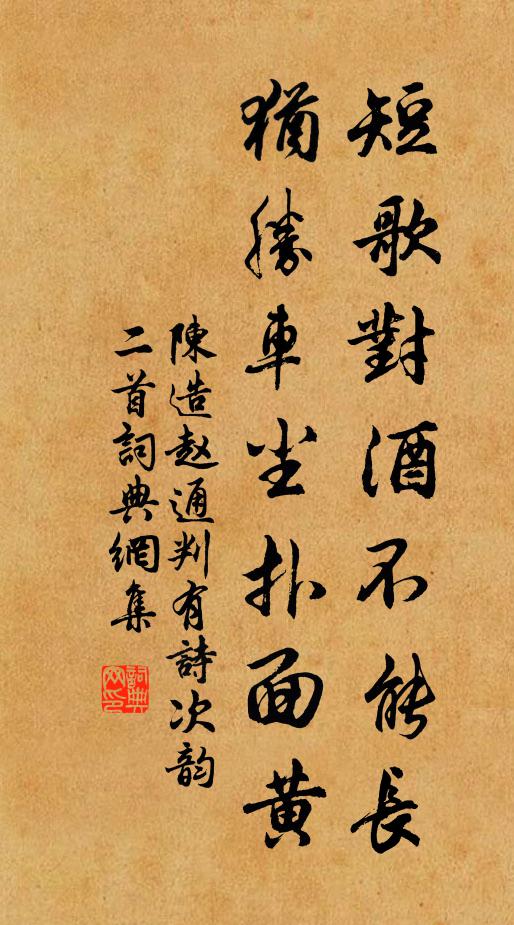 短歌對酒不能長
猶勝車尘扑面黄
陳造赵通判有詩次韵
二首詞典網集
詞典网印